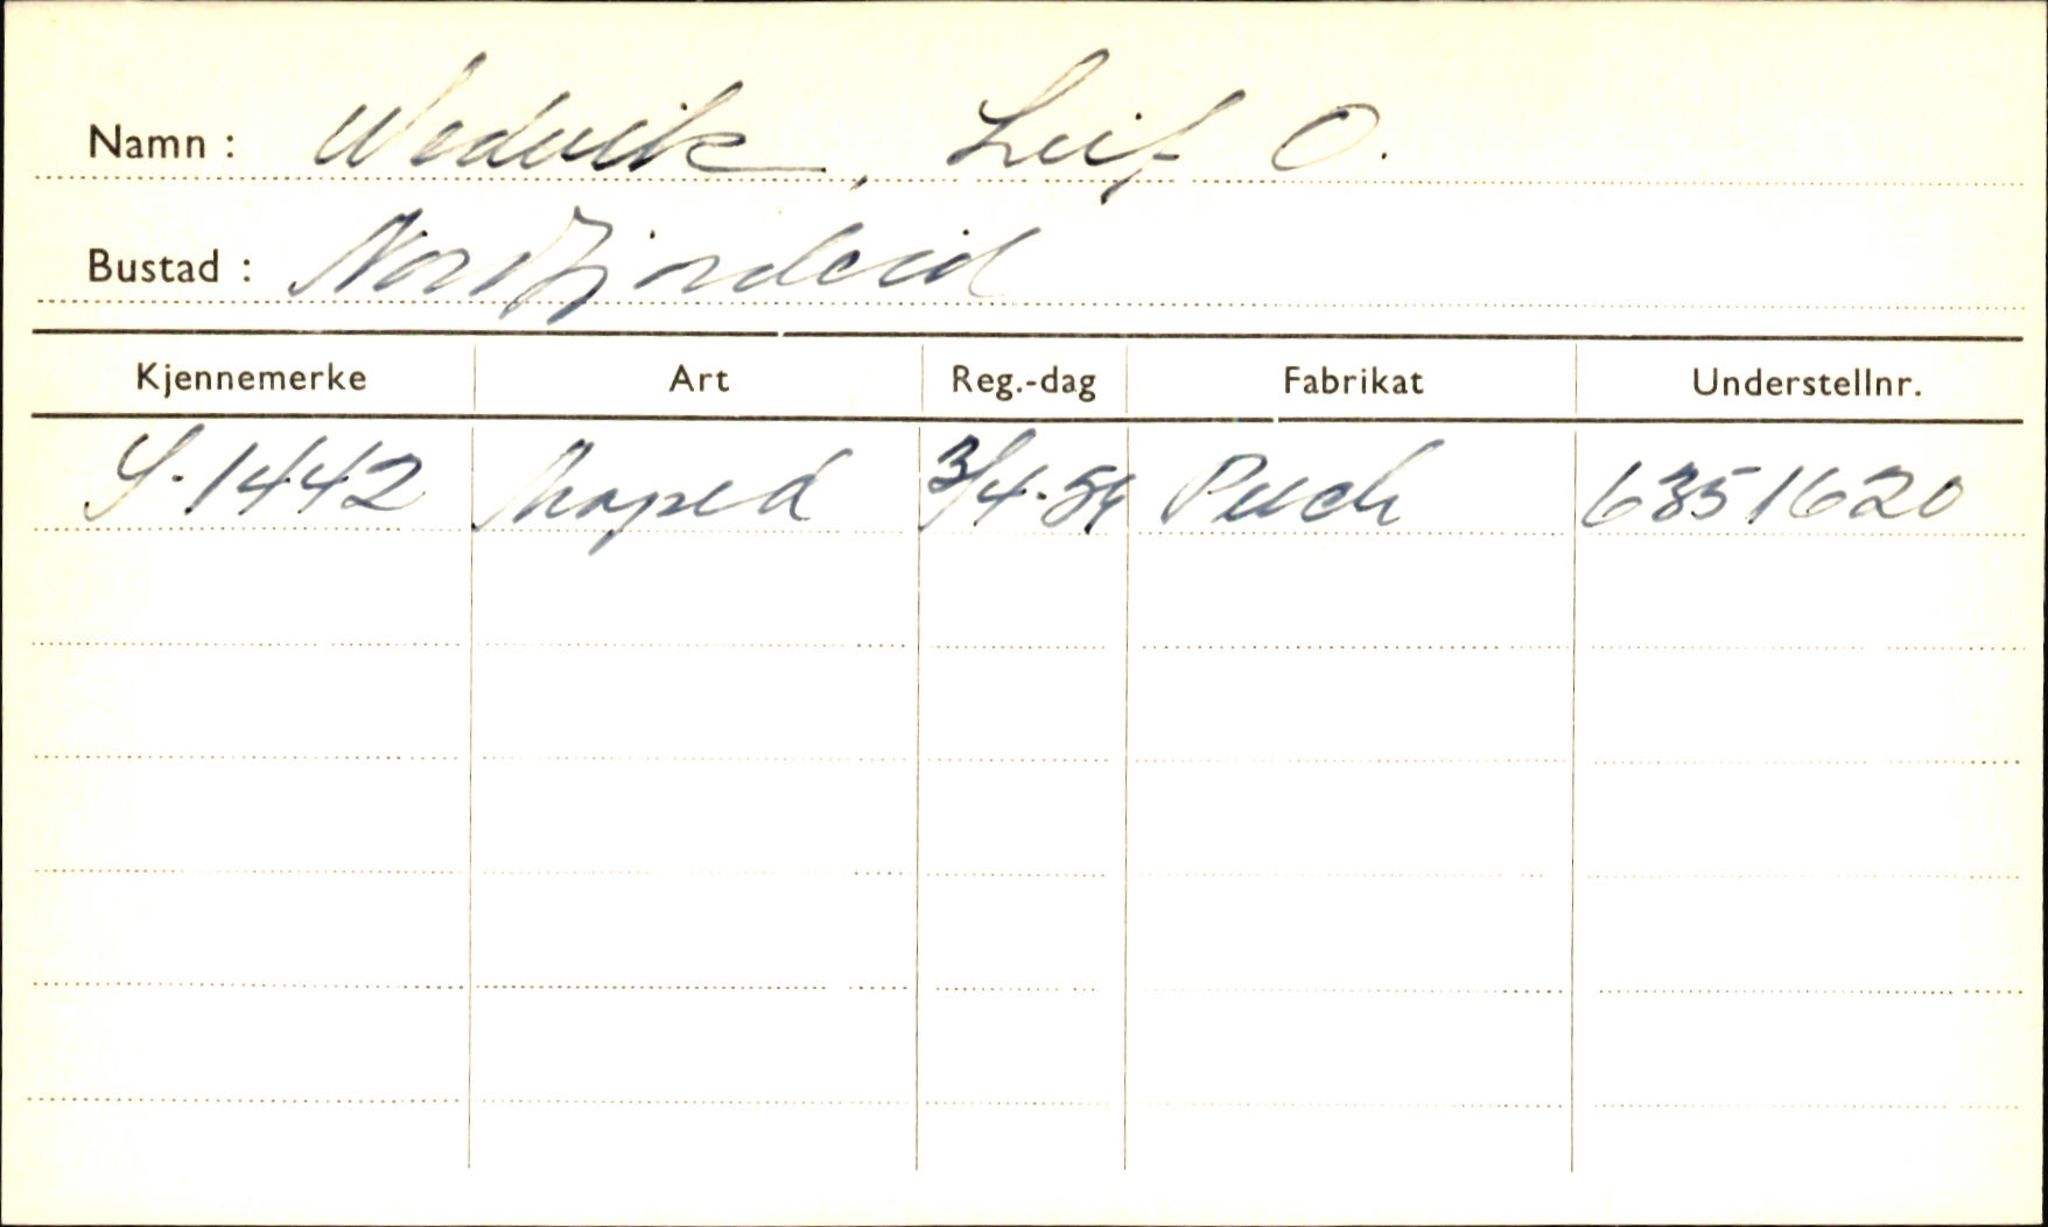 Namn : Wedvik, Leif O.
Bustad : Nordfjordeid
Kjennemerke Art Reg.-dag Fabrikat Understellnr.
S-1442 Moped 3/4-59 Puch 6351620